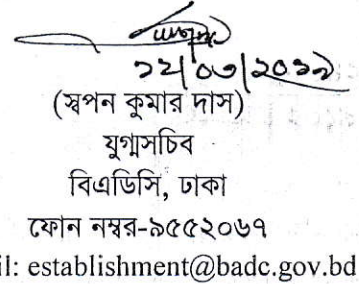 ১২/০৩/২০১৯
(স্বপন কুমার দাস)
যুগ্মসচিব
বিএডিসি, ঢাকা
ফোন নম্বর-৯৫৫২০৬৭
il: establishment@badc.gov.bd